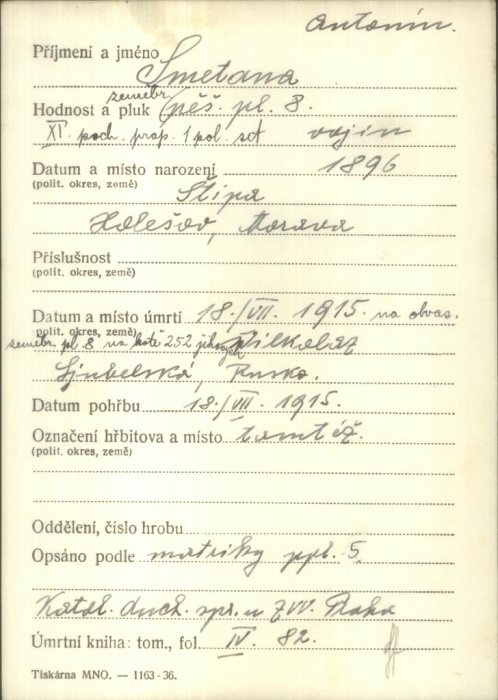 Antonín.
Příjmení a jméno Smetana
zeměbr.
Hodnost a pluk pěš. pl. 8.
XI. poch. prap. 1 pol. set vojín
Datum a místo narození 1896
(polit. okres, země) Štípa
Holešov, Morava
Příslušnost
(polit. okres, země)
Datum a místo úmrtí 18./VII. 1915. na obvaz.
(polit. okres, země)
zeměbr. pl. 8 na kótě 252 jihových. Wilkolaz
Ljubelská, Rusko.
Datum pohřbu 18./VII. 1915.
Označení hřbitova a místo tamtéž.
(polit. okres, země)
Oddělení, číslo hrobu
Opsáno podle matriky ppl. 5.
Katol. duch. spr. u ZVV. Praha
Úmrtní kniha: tom., fol. IV. 82.
Tiskárna MNO. — 1163-36.